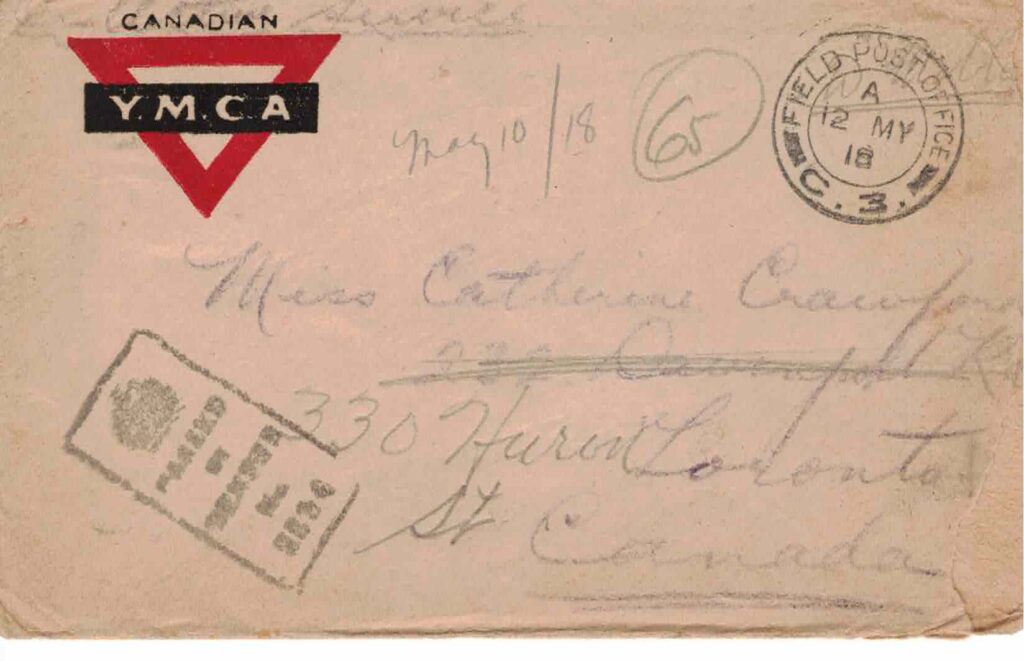 Service
CANADIAN
Y.M.C.A
May 10/18
65
FIELD POST OFFICE
A
12 MY
18
C. 3.
Miss Catherine Crawford
330 Huron Toronto
St. Canada
PASSED
BY
CENSOR
No.